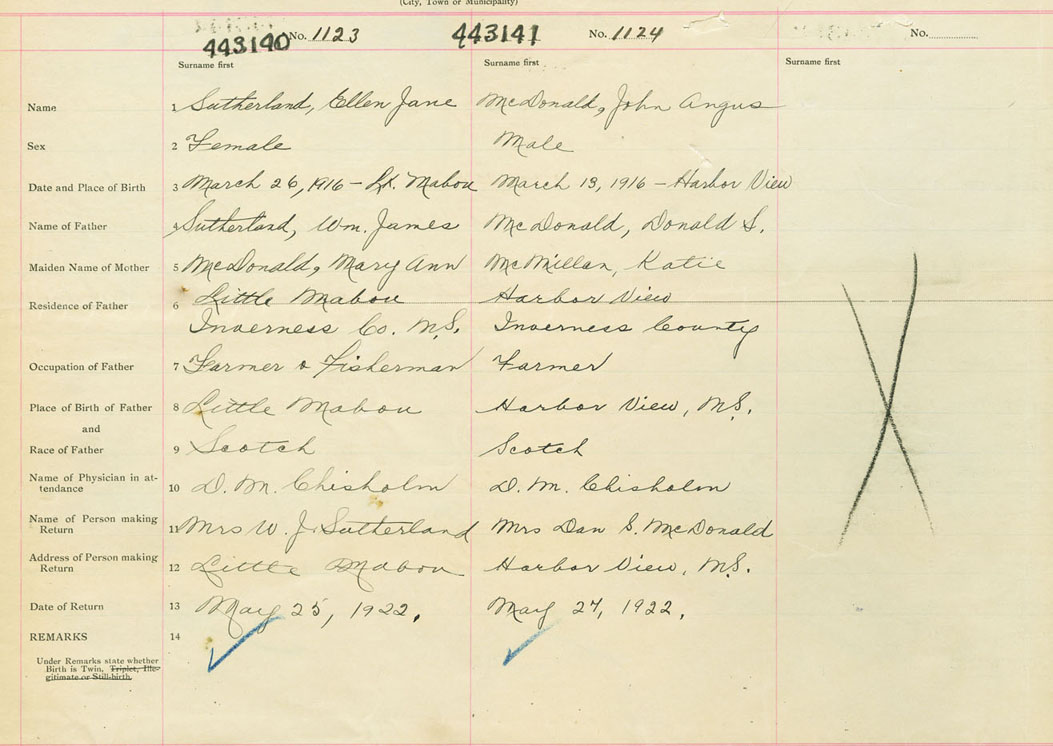 (City, Town or Municipality)
443140 No. 1123 443141 No. 1124 No.
Surname first Surname first Surname first
Name 1 Sutherland, Ellen Jane McDonald, John Angus
Sex 2 Female Male
Date and Place of Birth 3 March 26, 1916 - Lt. Mabou March 13, 1916 - Harbor View
Name of Father 4 Sutherland, Wm. James McDonald, Donald S.
Maiden Name of Mother 5 McDonald, Mary Ann McMillan, Katie
Residence of Father 6 Little Mabou Harbor View
Inverness Co. N.S. Inverness County
Occupation of Father 7 Farmer & Fisherman Farmer
Place of Birth of Father 8 Little Mabou Harbor View, N.S.
and
Race of Father 9 Scotch Scotch
Name of Physician in at-
tendance 10 D. M. Chisholm D. M. Chisholm
Name of Person making
Return 11 Mrs W. J. Sutherland Mrs Dan S. McDonald
Address of Person making
Return 12 Little Mabou Harbor View, N.S.
Date of Return 13 May 25, 1922. May 27, 1922.
REMARKS 14
Under Remarks state whether
Birth is Twin, Triplet, Ille-
gitimate or Still-birth.